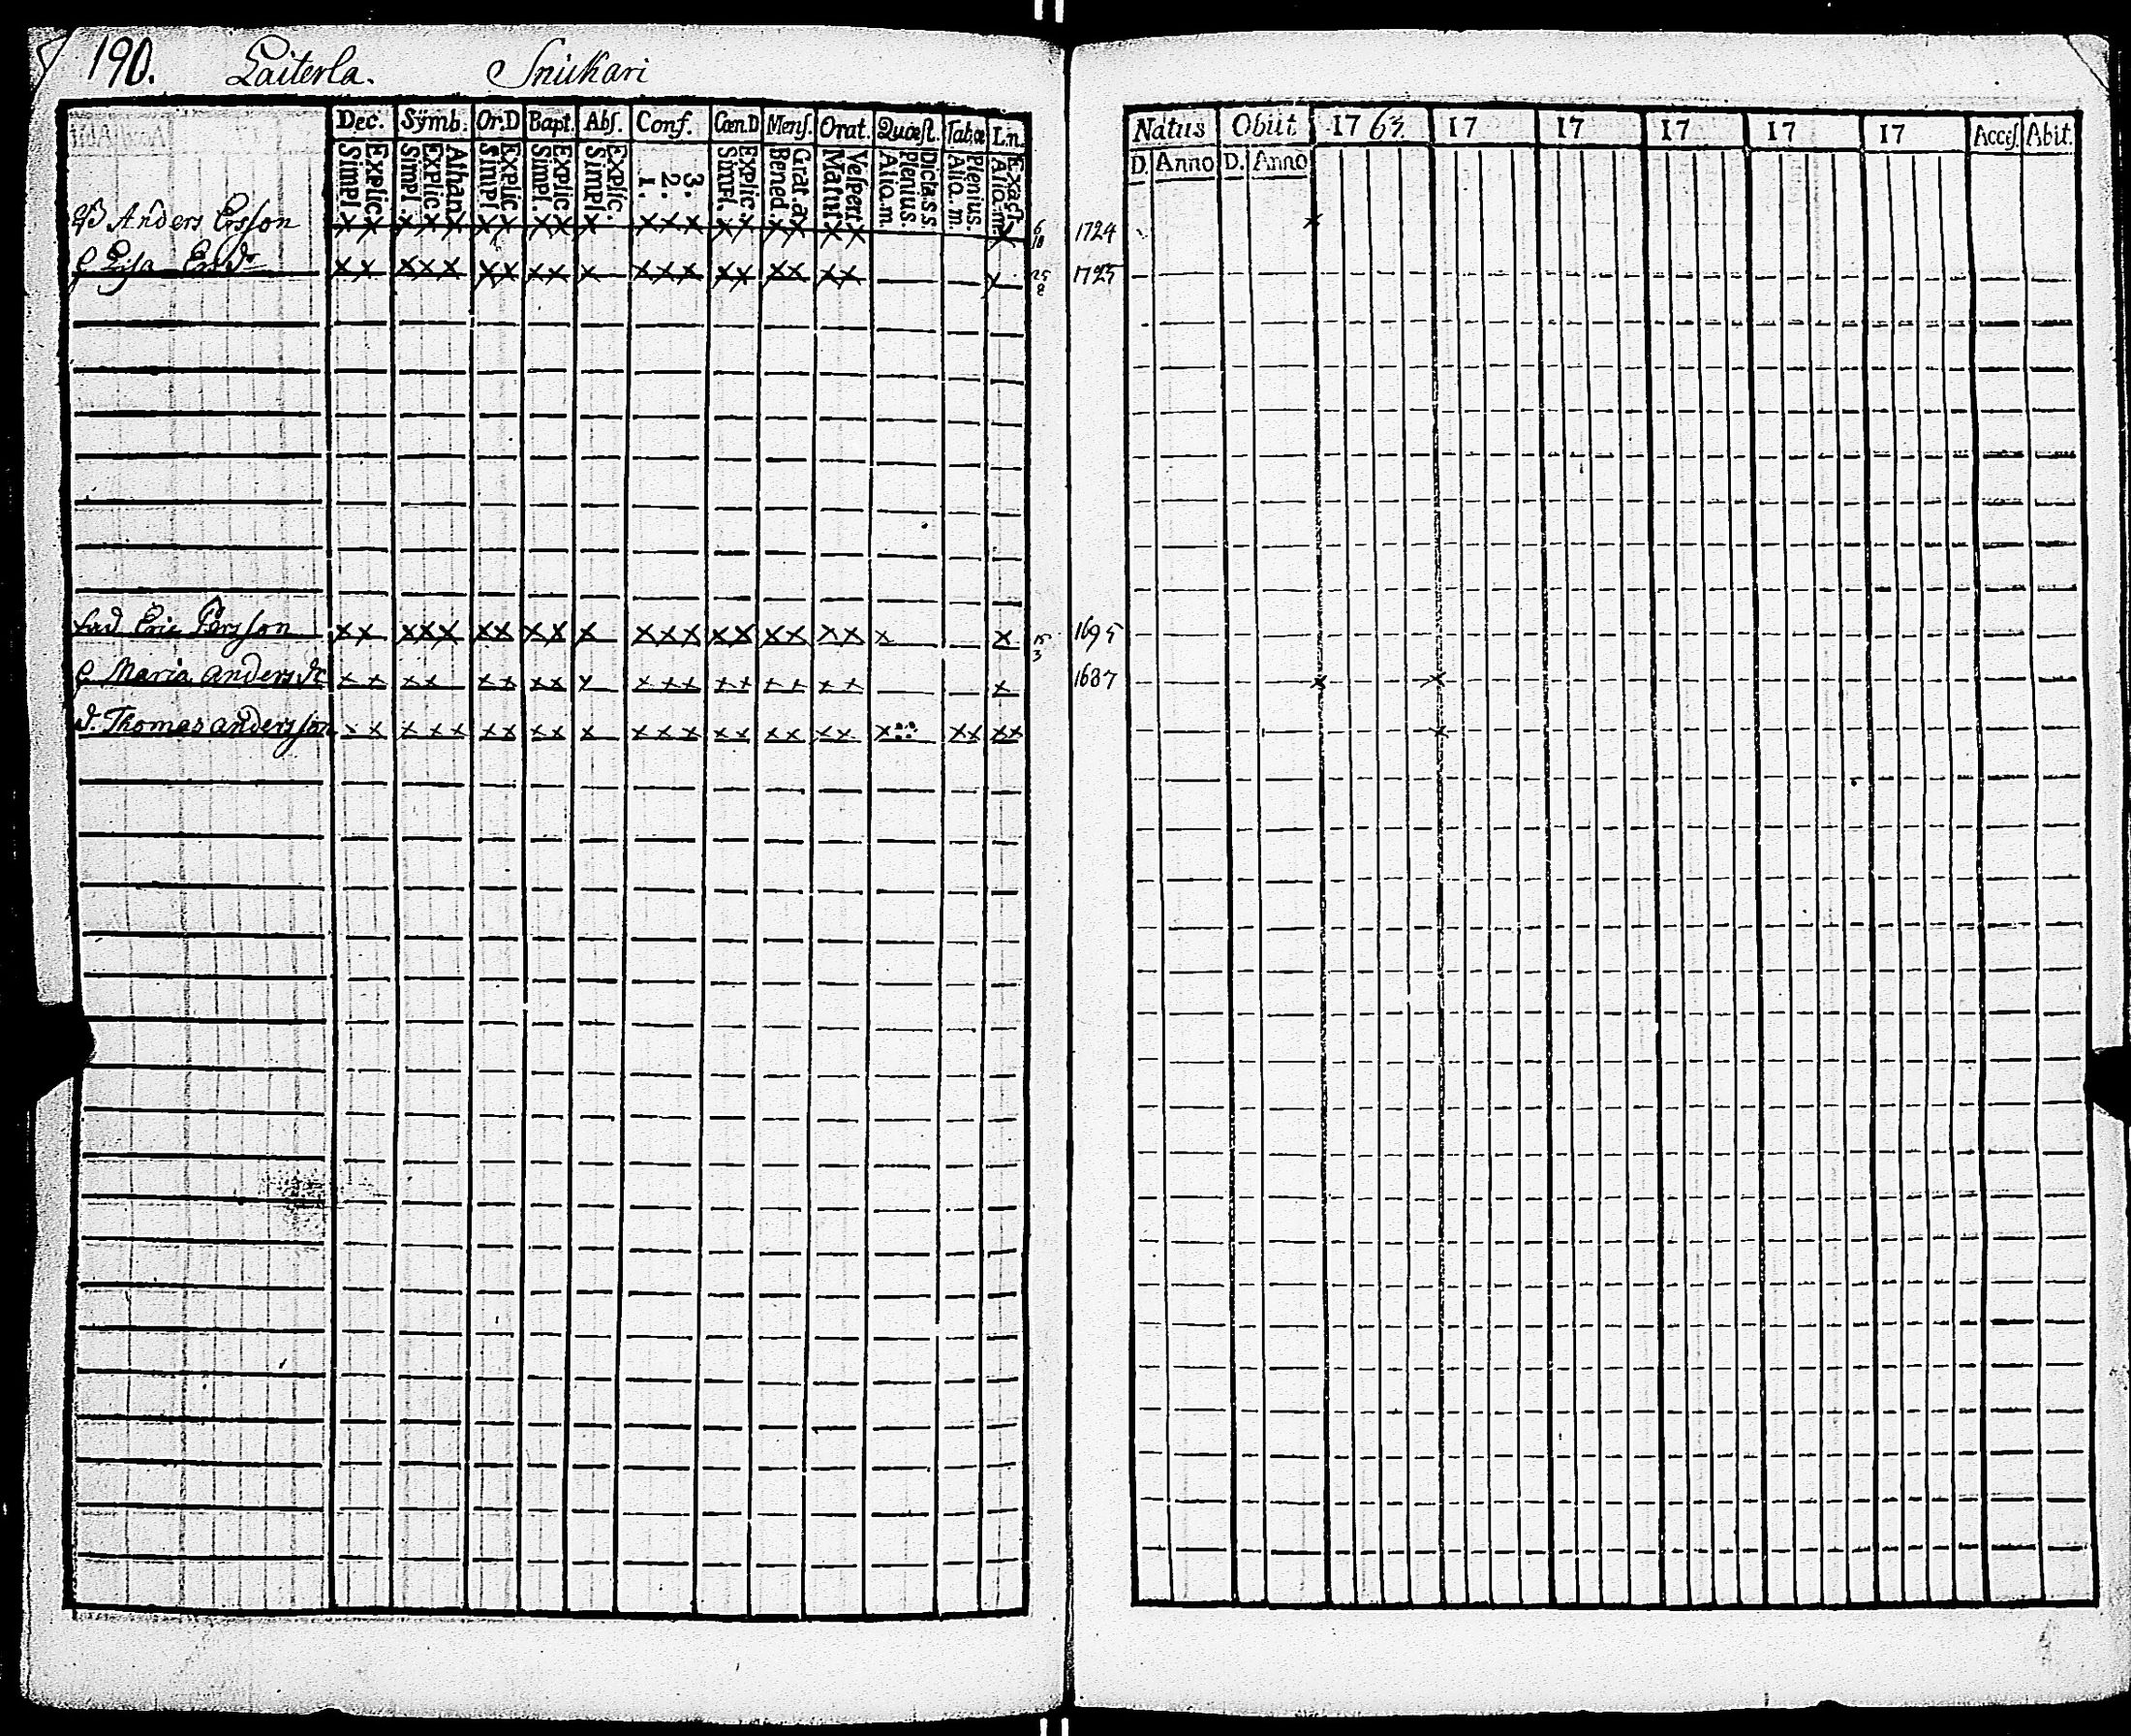 190. Laiterla. Snickari
Dec. Symb. Or.D Bapt. Abs. Conf. Cœn.D Mens. Orat. Quæst. Tabæ L.n.
Simpl. Explic. Simpl Explic Athan Simpl Explic. Simpl. Explic. Simpl. Explic. 1. 2. 3. Simpl. Explic. Bened. Grat.a Matut. Vespert. Aliq.m. Plenius. Dicta s.s. Aliq.m. Plenius. Aliq.m. Exact.
Anders Ersson x x x x x x x x x x x x x x x x x x x x 6/10
Lisa x x x x x x x x x x x x x x x x x x x 25/8
Eric Persson x x x x x x x x x x x x x x x x x x x x 15/3
Maria Andersdr x x x x x x x x x x x x x x x x x x x
d. Thomas Andersson x x x x x x x x x x x x x x x x x x x x x x x x
Natus Obiit 1763 17 17 17 17 17 Access. Abit.
D. Anno D. Anno
1724 x
1725
1695
1687 x x
x